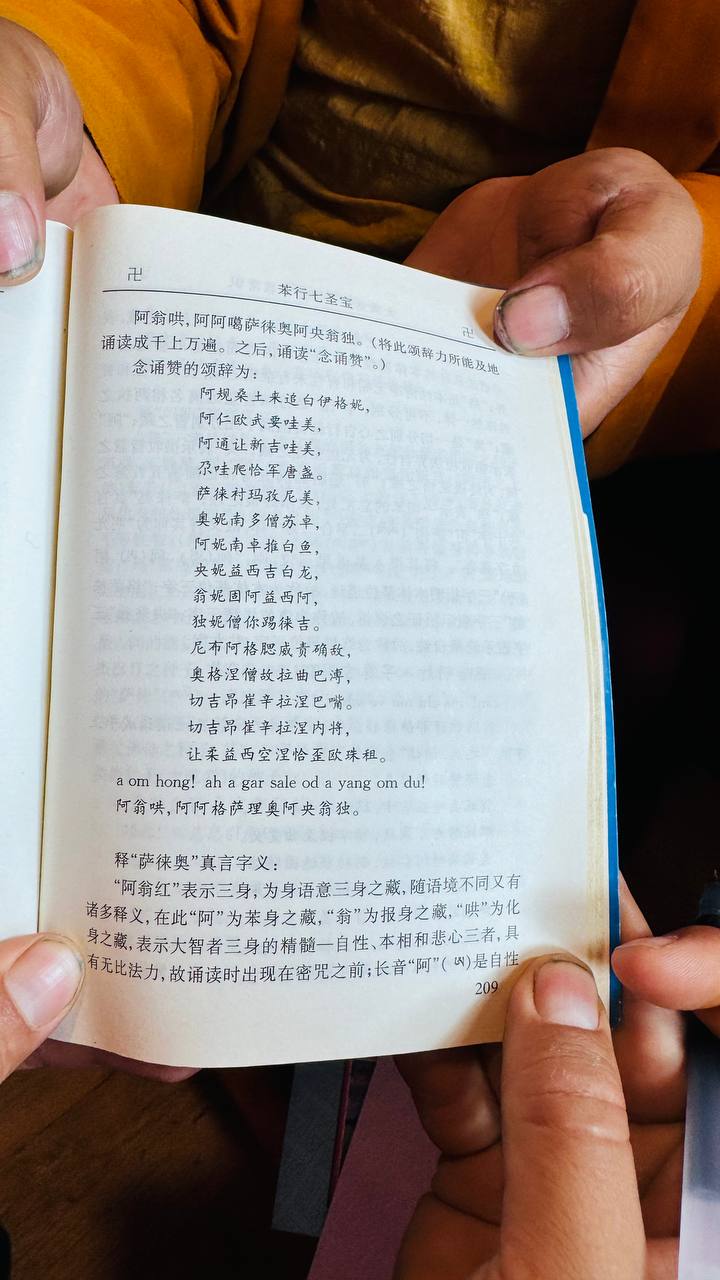 卍
苯行七圣宝
卍
阿翁哄,阿阿噶萨徕奥阿央翁独。(将此颂辞力所能及地
诵读成千上万遍。之后,诵读“念诵赞”。)
念诵赞的颂辞为:
阿规桑土来追白伊格妮,
阿仁欧武要哇美,
阿通让新吉哇美,
尕哇爬恰军唐盏。
萨徕衬玛孜尼美,
奥妮南多僧苏卓,
阿妮南卓推白鱼,
央妮益西吉白龙,
翁妮固阿益西阿,
独妮僧你踢徕吉。
尼布阿格腮威贵确敌,
奥格涅僧故拉曲巴溥,
切吉昂崔辛拉涅巴嘴。
切吉昂崔辛拉涅内将,
让柔益西空涅恰歪欧珠租。
a om hong! ah a gar sale od a yang om du!
阿翁哄,阿阿格萨理奥阿央翁独。
释“萨徕奥”真言字义:
“阿翁红”表示三身,为身语意三身之藏,随语境不同又有
诸多释义,在此“阿”为苯身之藏,“翁”为报身之藏,“哄”为化
身之藏,表示大智者三身的精髓—自性、本相和悲心三者,具
有无比法力,故诵读时出现在密咒之前;长音“阿”(ཨ)是自性
209